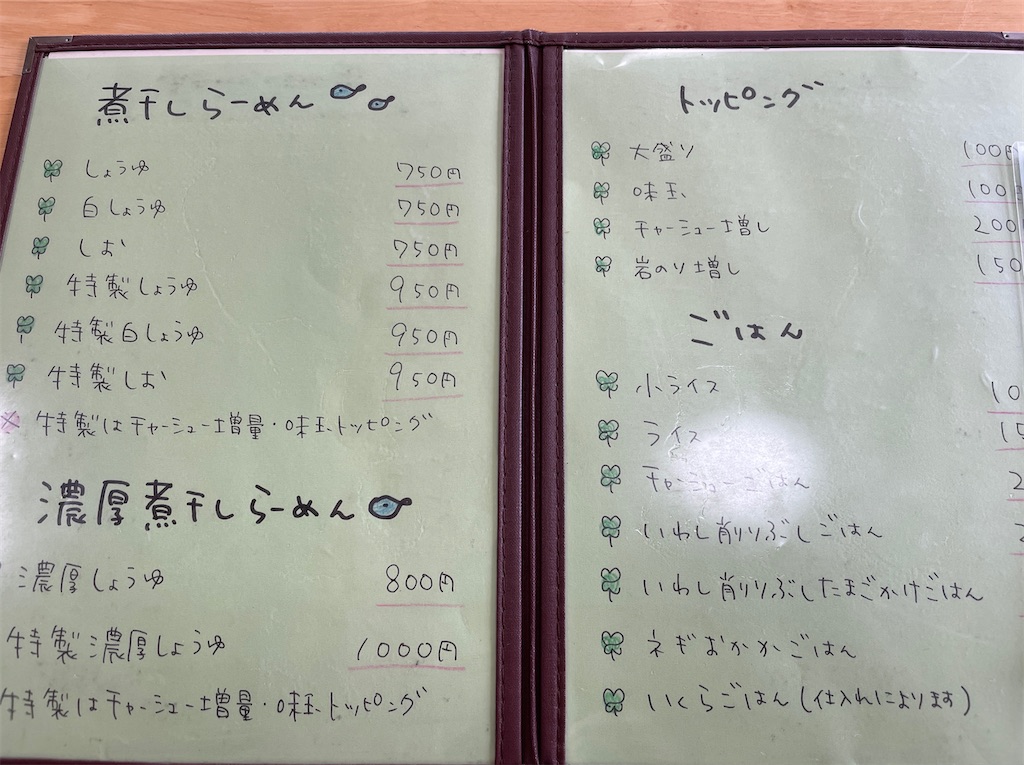 煮干しらーめん
しょうゆ 750円
白しょうゆ 750円
しお 750円
特製しょうゆ 950円
特製白しょうゆ 950円
特製しお 950円
※特製はチャーシュー増量・味玉トッピング
濃厚煮干しらーめん
濃厚しょうゆ 800円
特製濃厚しょうゆ 1000円
特製はチャーシュー増量・味玉トッピング
トッピング
大盛り 100円
味玉 100
チャーシュー増し 200
岩のり増し 150
ごはん
小ライス 10
ライス 15
チャーシューごはん 2
いわし削りぶしごはん 2
いわし削りぶしたまごかけごはん
ネギおかかごはん
いくらごはん(仕入れによります)